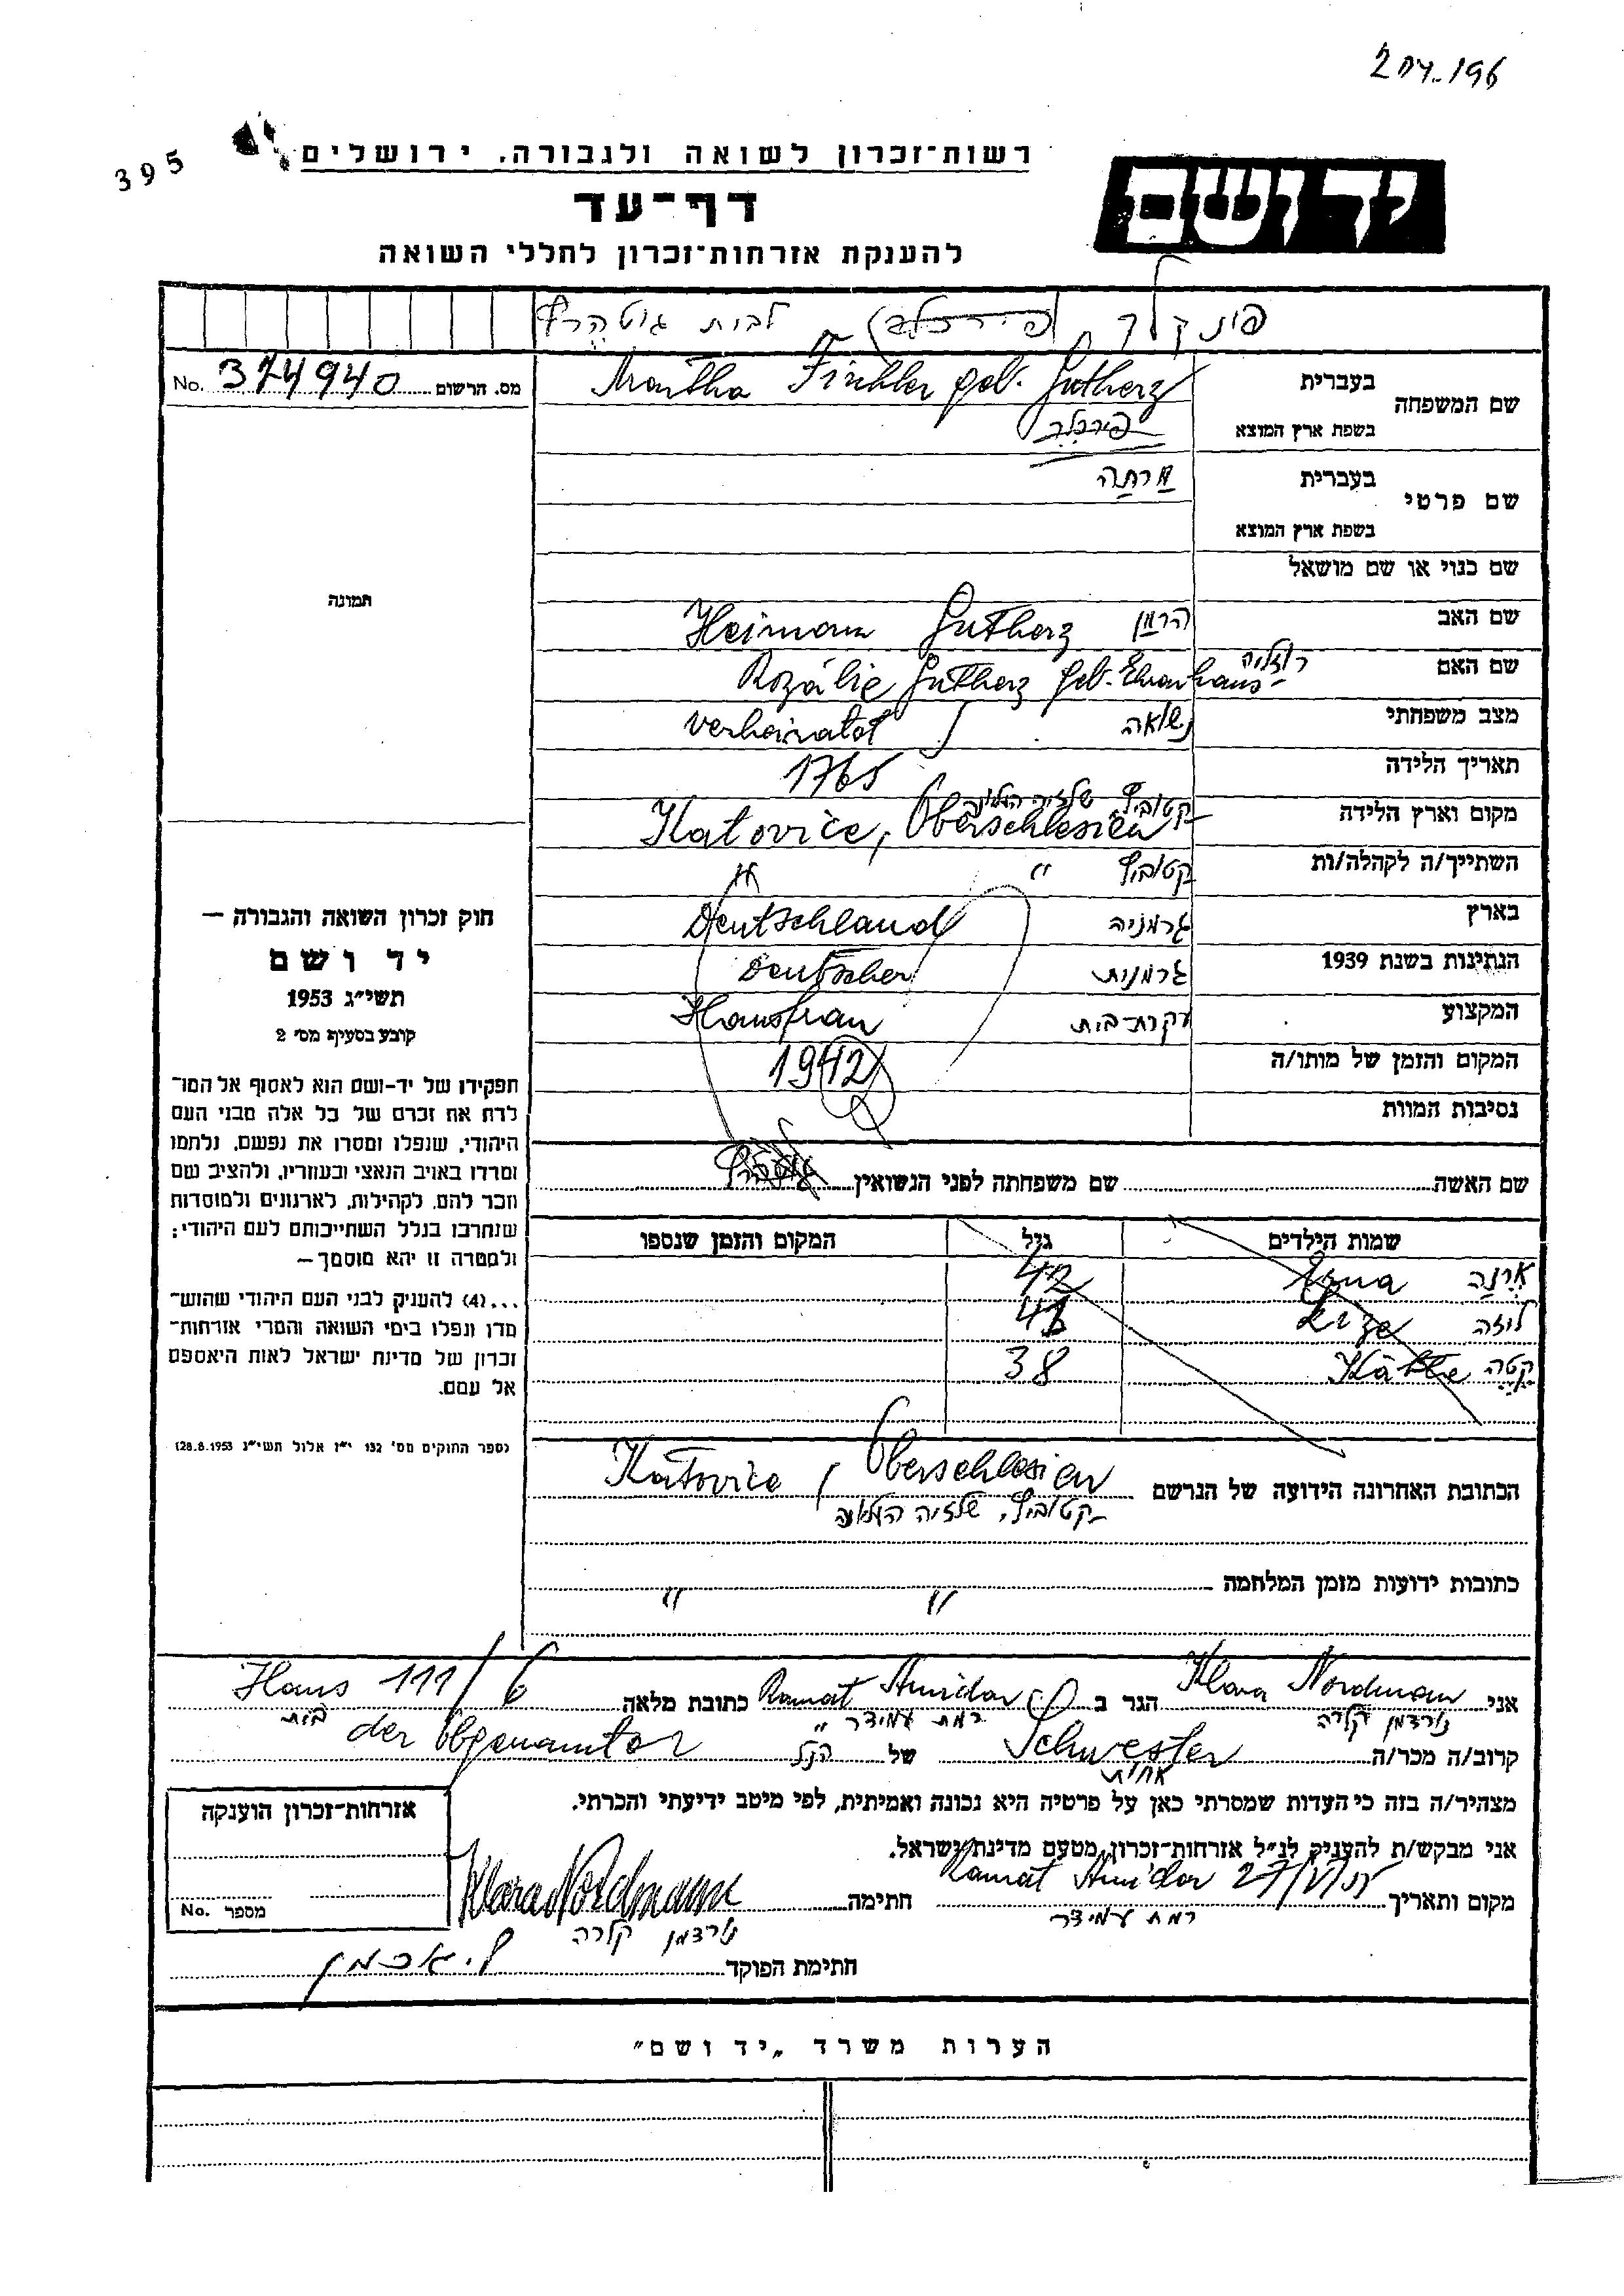 204.196
395
רשות־זכרון לשואה ולגבורה, ירושלים
יד ושם
דף־עד
להענקת אזרחות־זכרון לחללי השואה
לבית גוטהרץ
מס. הרשום 374940 No.
שם המשפחה בעברית Martha Finkler geb. Gutherz
בשפת ארץ המוצא
שם פרטי בעברית מרתה
בשפת ארץ המוצא
שם כנוי או שם מושאל
תמונה
שם האב הרמן Heimann Gutherz
שם האם רוזליה Rozálie Gutherz geb.
מצב משפחתי נשואה verheiratet
תאריך הלידה 1765
מקום וארץ הלידה קטוביץ שלזיה העלית Katovice, Oberschlesien
השתייך/ה לקהלה/ות קטוביץ " "
בארץ גרמניה Deutschland
הנתינות בשנת 1939 גרמנית Deutscher
המקצוע עקרת־בית Hausfrau
המקום והזמן של מותו/ה 1942
נסיבות המוות
חוק זכרון השואה והגבורה —
יד ושם
תשי"ג 1953
קובע בסעיף מס' 2
תפקידו של יד-ושם הוא לאסוף אל המו־
לדת את זכרם של כל אלה מבני העם
היהודי, שנפלו ומסרו את נפשם, נלחמו
ומרדו באויב הנאצי ובעוזריו, ולהציב שם
וזכר להם, לקהילות, לארגונים ולמוסדות
שנחרבו בגלל השתייכותם לעם היהודי;
ולמטרה זו יהא מוסמך —
...(4) להעניק לבני העם היהודי שהוש־
מדו ונפלו בימי השואה והמרי אזרחות־
זכרון של מדינת ישראל לאות היאספם
אל עמם.
(ספר החוקים מס' 132 י"ז אלול תשי"ג 28.8.1953)
שם האשה שם משפחתה לפני הנשואין
שמות הילדים גיל המקום והזמן שנספו
ארנה Erna 42
ליזה Lize 41
קטה Käthe 38
הכתובת האחרונה הידועה של הנרשם Katovice, Oberschlesien
קטוביץ, שלזיה העלית
כתובות ידועות מזמן המלחמה " "
אני Klara Nordmann הגר ב Ramat Amidar כתובת מלאה Haus 111/6
נורדמן קלרה רמת עמידר בית
קרוב/ה מכר/ה Schwester של הנ"ל der Obgenannter
אחות
מצהיר/ה בזה כי העדות שמסרתי כאן על פרטיה היא נכונה ואמיתית, לפי מיטב ידיעתי והכרתי.
אני מבקש/ת להעניק לנ"ל אזרחות־זכרון מטעם מדינת ישראל.
מקום ותאריך Ramat Amidar חתימה Klara Nordmann
רמת עמידר נורדמן קלרה
חתימת הפוקד
אזרחות־זכרון הוענקה
מספר No.
הערות משרד „יד ושם"